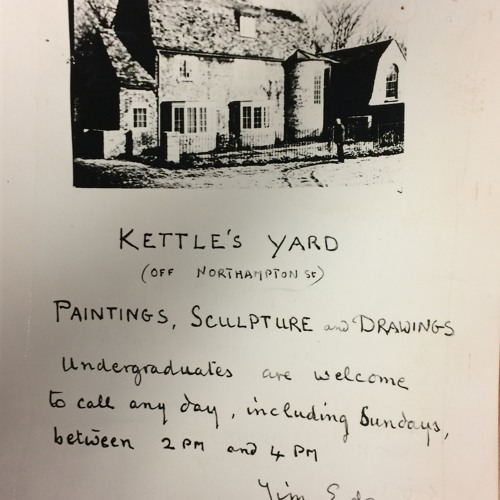 KETTLE'S YARD
(OFF NORTHAMPTON St)
PAINTINGS, SCULPTURE and DRAWINGS
Undergraduates are welcome
to call any day, including Sundays,
between 2 PM and 4 PM
Jim